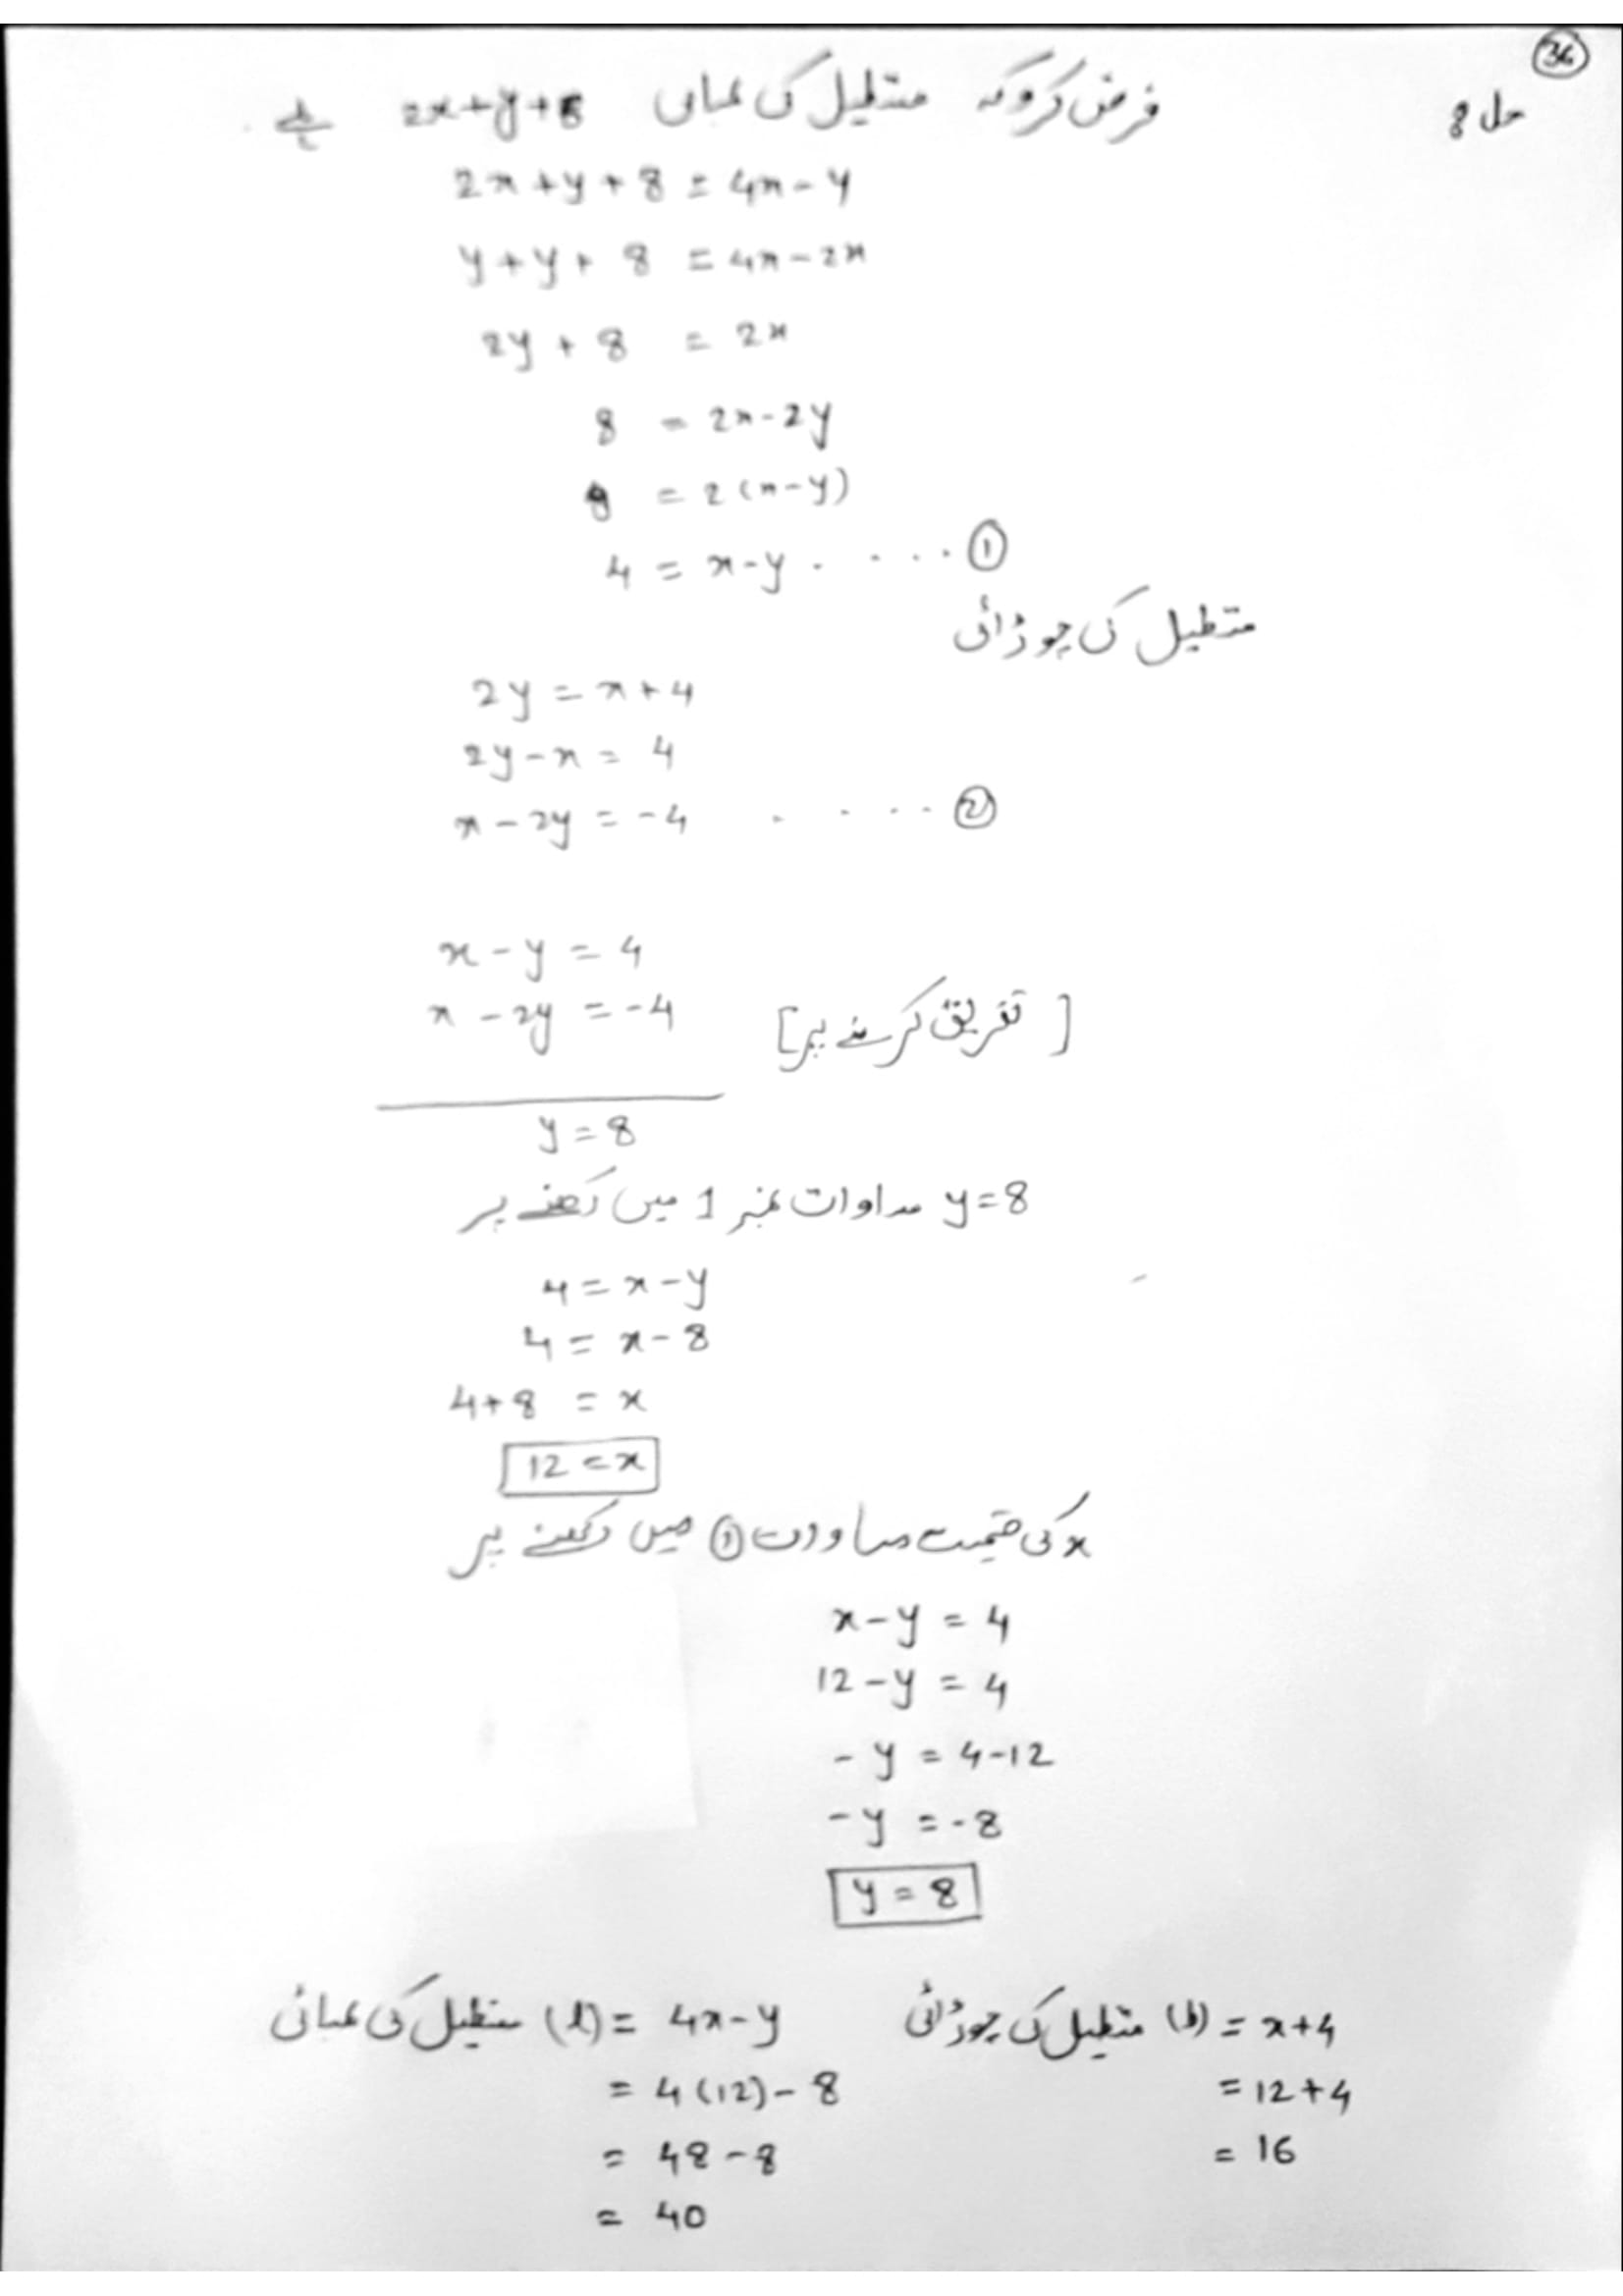 36
حل 8
فرض کرو کہ متطیل کی لمبائی 2x+y+8 ہے
2x + y + 8 = 4x - y
y + y + 8 = 4x - 2x
2y + 8 = 2x
8 = 2x - 2y
8 = 2(x-y)
4 = x-y . . . . . ①
متطیل کی چوڑائی
2y = x+4
2y - x = 4
x - 2y = -4 . . . . . ②
x - y = 4
x - 2y = -4 [تفریق کرنے پر]
y = 8
y=8 مساوات نمبر 1 میں رکھنے پر
4 = x-y
4 = x-8
4+8 = x
12 = x
x کی قیمت مساوات ① میں رکھنے پر
x-y = 4
12-y = 4
-y = 4-12
-y = -8
y = 8
متطیل کی لمبائی (l) = 4x-y
= 4(12)-8
= 48-8
= 40
متطیل کی چوڑائی (b) = x+4
= 12+4
= 16